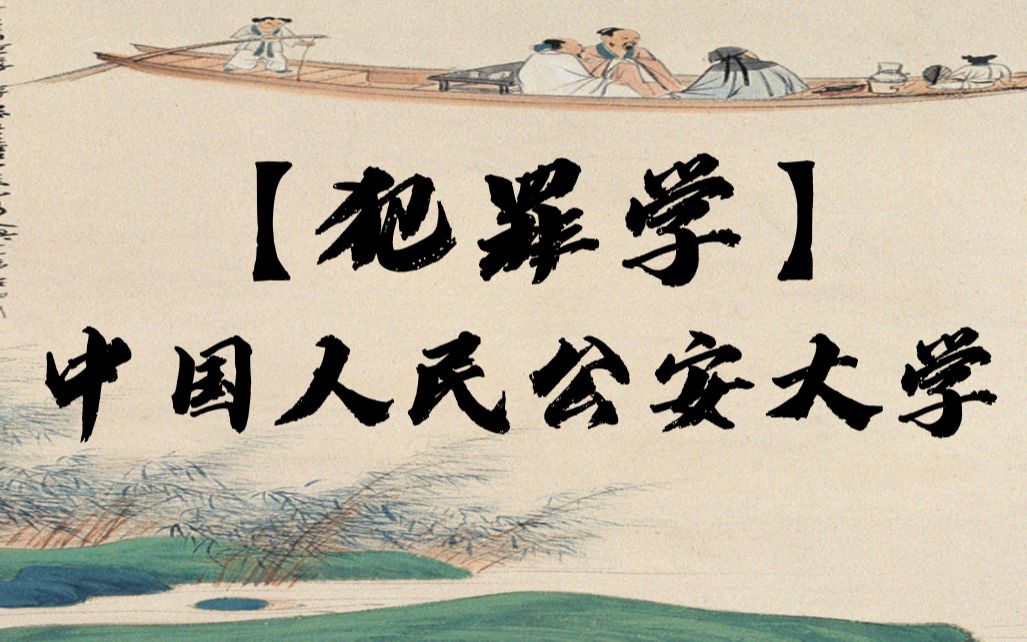 【犯罪学】
中国人民公安大学